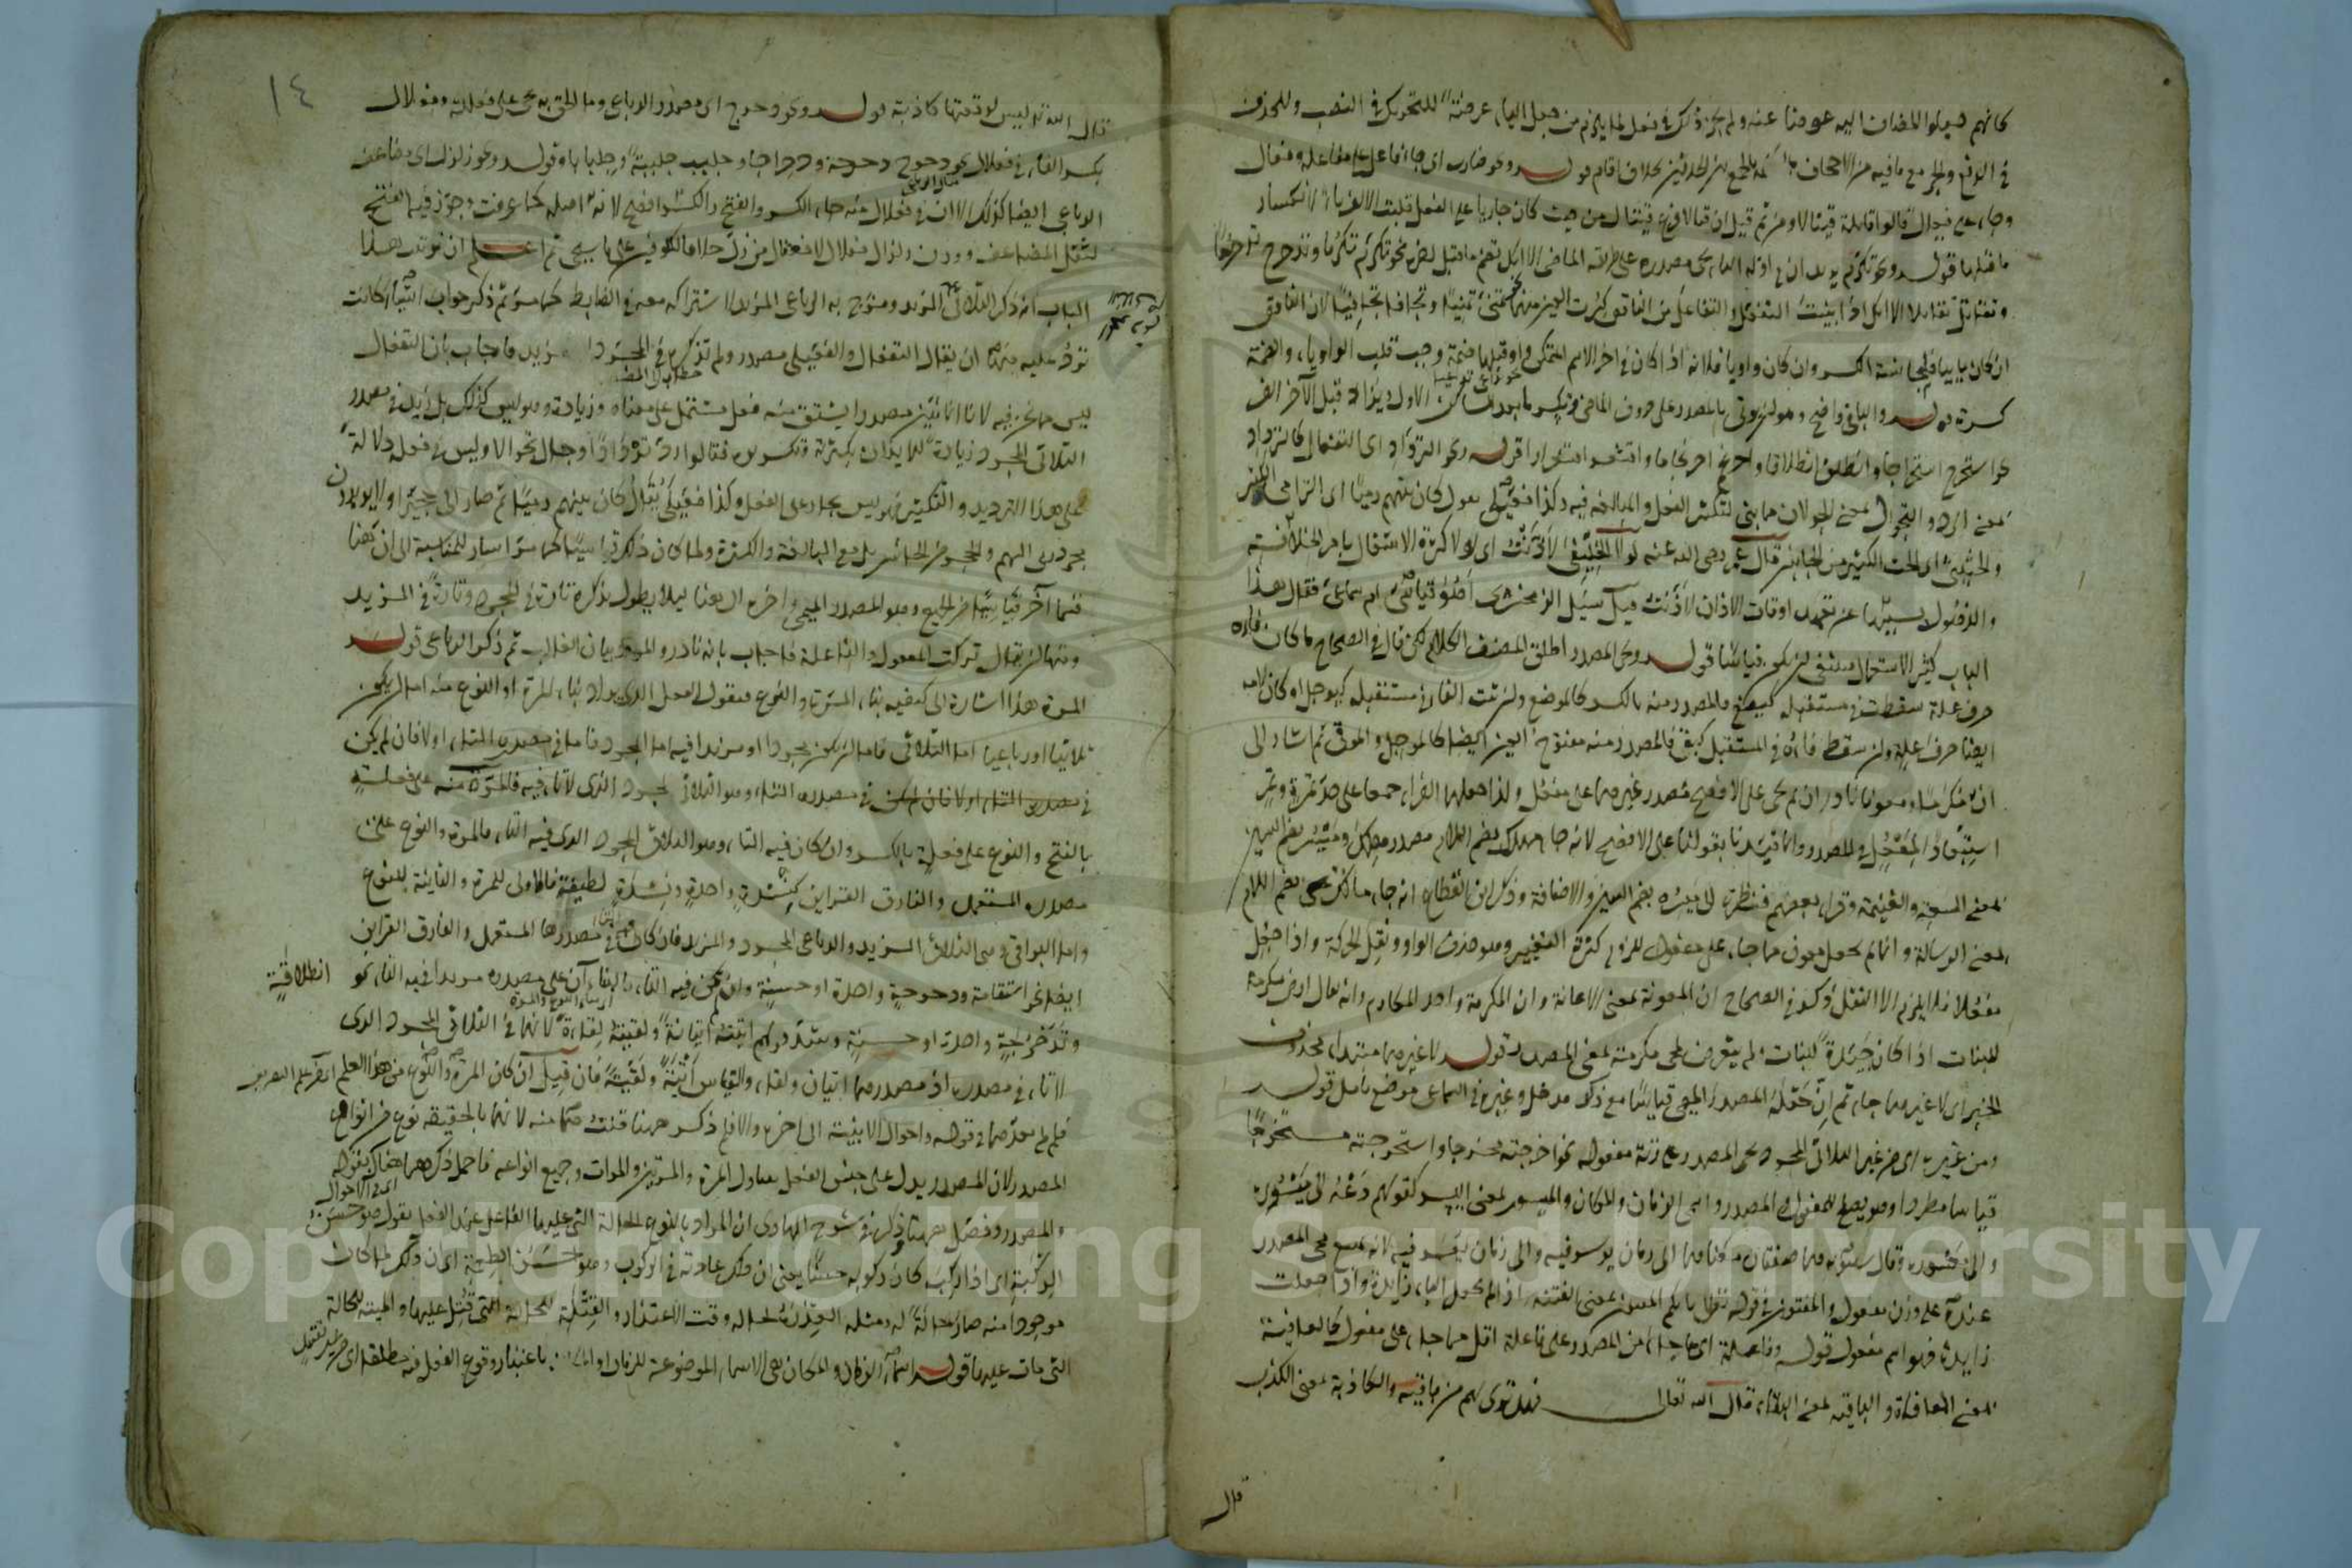 كانهم جعلوا المضاف اليه عوضا عنه ولم يجز ذلك في فعل لما يلزم من جعل الياء عرضة للتحريك في النصب وللحذف
في الرفع والجر مع ما فيه من الاجحاف بخلاف اقام قوله ونحو ضارب اى جاء فاعل على مفاعلة وفعال
وجاء على فيعال قالوا قاتلة قيتالا ومن ثم قيل ان قتالا فرع قيتال من حيث كان جاريا على الفعل قلبت الالف ياء لانكسار
ما قبلها قوله ونحو تكرم يريد ان ما في اوله التاء يجئ مصدره على طريقة الماضى الا انك تضم ما قبل الآخر نحو تكرم تكرما وتدحرج تدحرجا
وتقاتل تقاتلا الا انك اذا بنيت التفعل والتفاعل من الناقص كسرت العين منهما نحو تمنى تمنيا وتجافا تجافيا لان الناقص
ان كان يائيا فلمجانسة الكسر وان كان واويا فلانه اذا كان في اخر الاسم المتمكن واو قبلها ضمة وجب قلب الواو ياء والضمة
كسرة قوله والباقي واضح وهو ان يؤتى بالمصدر على حروف الماضى ويكسر ما بعد الساكن الاول ويزاد قبل الآخر الف
نحو استخرج استخراجا وانطلق انطلاقا واحرنجم احرنجاما واقشعر اقشعرارا قوله ونحو الترداد اى التفعال كالترداد
بمعنى الرد والتجوال بمعنى الجولان مما بنى لتكثير الفعل والمبالغة فيه وكذا فعيلى يقول كان بينهم رميا اى الترامى الكثير
والحثيثى اى الحث الكثير من الجانبين قال عمر رضى الله عنه لولا الخليفى لاذنت اى لولا كثرة الاشتغال بامر الخلافة
والذهول بسببها عن تعهد اوقات الاذان لاذنت قيل سئل الزمخشرى اهو قياسى ام سماعى فقال هذا
الباب كثير الاستعمال فينبغى ان يكون قياسا قوله ويجئ المصدر اطلق المصنف الكلام لكن قال في الصحاح ما كان فاؤه
حرف علة سقطت في مستقبله كيضع فالمصدر منه بالكسر كالموضع وان ثبت الفاء في مستقبله كيوجل او كان لامه
ايضا حرف علة وان سقط فاؤه في المستقبل كيقى فالمصدر منه مفتوح العين ايضا كالموجل والموقى ثم اشار الى
ان مكرما ومعونا نادران لم يجئ على الافصح مصدر غيرهما على مفعل ولذا جعلهما الفراء جمعا على حد تمرة وتمر
استبعادا لمفعل في المصدر وانما قيدنا بقولنا على الافصح لانه جاء مهلك بضم اللام مصدر مهلك وميسر بضم السين
بمعنى السعة والغنيمة وقرا بعضهم فنظرة الى ميسره بضم السين والاضافة وذكر ابن القطاع انه جاء مالك بضم اللام
بمعنى الرسالة وانما لم يجعل معون مما جاء على مفعول للزوم كثرة التغيير وهو حذف الواو ونقل الحركة واذا جعل
مفعلا فلا يلزم الا النقل وذكر في الصحاح ان المعونة بمعنى الاعانة وان المكرمة واحد المكارم وانه يقال ارض مكرمة
للنبات اذا كان جيدة للنبات ولم يتعرض لمجئ مكرمة بمعنى المصدر قوله ولا غيرهما مبتداء محذوف
الخبر اى لا غيرهما جاء ثم ان جعله المصدر الميمى قياسا مع ذكر مدخل وغيره في السماعى موضع تامل قوله
ومن غيره اى من غير الثلاثى المجرد يجئ المصدر على زنة مفعوله نحو اخرجته مخرجا واستخرجته مستخرجا
قياسا مطردا وهو يصلح للمفعول والمصدر واسمى الزمان والمكان والميسور بمعنى اليسر كقولهم دعه الى ميسوره
والى معسوره وقال سيبويه هما صفتان معناهما الى زمان يوسر فيه والى زمان يعسر فيه لانه يمنع مجئ المصدر
عنده على وزن مفعول والمفتون في قوله تعالى بايكم المفتون بمعنى الفتنة اذا لم يجعل الباء زايدة واذا جعلت
زايدة فهو اسم مفعول قوله وفاعلة اى ما جاء من المصدر على فاعلة اقل مما جاء على مفعول كالعافية
بمعنى المعافاة والباقية بمعنى البقاء قال الله تعالى فهل ترى لهم من باقية والكاذبة بمعنى الكذب
قال
١٤
قال الله تعالى ليس لوقعتها كاذبة قوله ونحو دحرج اى مصدر الرباعى وما الحق به يجئ على فعللة وفعلال
بكسر الفاء في فعلال نحو دحرج دحرجة ودحراجا وجلبب جلببة وجلبابا وقوله ونحو زلزل اى مضاعف
الرباعى ايضا كذلك الا ان في فعلال منه جاء الكسر والفتح والكسر افصح لانه اصله كما عرفت وجوز فيه الفتح
لثقل المضاعف ووزن زلزال فعلال لا فعفال من زل خلافا للكوفيين على ما سيجئ ثم اعلم ان قوله هذا
الباب انه ذكر الثلاثى المزيد ومزج به الرباعى المزيد لاشتراكه معه في الضابط كما مر ثم ذكر جواب اشياء كانت
ترد عليه منها ان يقال التفعال والفعيلى مصدر ولم تذكره في المجرد مزيد فاجاب بان التفعال
ليس مما نحن فيه لانا انما نبين مصدرا يشتق منه فعل مشتمل على معناه وزيادة وهو ليس كذلك بل زيد في مصدر
الثلاثى المجرد زيادة للايذان بكثرة وتكرير فقالوا رد تردادا وجال تجوالا وليس في فعله دلالة
على هذا الترديد والتكثير فهو ليس بجار على الفعل وكذا فعيلى يقال كان بينهم رميا ثم صار الى حجيزا ولا يريدون
مجرد الرمى والحجز بل مع المبالغة والكثرة ولما كان ذلك قياسيا كما مر اشار للمناسبة الى ان ههنا
قسما آخر قياسيا من الجميع وهو المصدر الميمى واخره الى ههنا لئلا يطول بذكره تارة في المجرد وتارة في المزيد
ومنها ان يقال تركت المفعول والفاعلة فاجاب بانه نادر والمراد بيان الغالب ثم ذكر الرباعى قوله
المرة هذا اشارة الى كيفية بناء المرة والنوع فنقول الفعل الذى يراد بناء المرة او النوع منه اما ان يكون
ثلاثيا او رباعيا اما الثلاثى فاما ان يكون مجردا او مزيدا فيه اما المجرد فاما في مصدره التاء اولا فان لم يكن
في مصدره التاء اولا فان لم يكن في مصدره التاء وهو الثلاثى المجرد الذى لا تاء فيه فالمرة منه على فعلة
بالفتح والنوع على فعلة بالكسر وان كان فيه التاء وهو الثلاثى المجرد الذى فيه التاء فالمرة والنوع على
مصدره المستعمل والفارق القراين كنشدة واحدة ونشدة لطيفة فالاولى للمرة والثانية للنوع
واما البواقى وهى الثلاثى المزيد والرباعى المجرد والمزيد فان كان في مصدرها المستعمل والفارق القراين
ايضا نحو استقامة ودحرجة واحدة او حسنة وان لم يكن فيه التاء فالبناءآن على مصدره مزيدا فيه التاء نحو انطلاقة
وتدحرجة واحدة او حسنة وشذ قولهم اتيته اتيانة ولقيته لقاءة لانهما في الثلاثى المجرد الذى
لا تاء في مصدره اذ مصدرهما اتيان ولقاء والقياس اتية ولقية فان قيل ان كان المرة والنوع من هذا العلم
فلم لم يعدهما في قوله واحوال الابنية الى اخره والا فلم ذكر ههنا قلت هما منه لانهما بالحقيقة نوع من انواع
المصدر لان المصدر يدل على جنس الفعل يتناول المرة والمرتين والمرات وجميع انواعه فاجمل ذكرهما هناك بقوله
والمصدر وفصل ههنا وذكر في شرح الهادى ان المراد بالنوع الحالة التى عليها الفاعل عند الفعل تقول هو حسن
الركبة اى اذا ركب كان ركوبه حسنا يعنى ان ذلك عادته في الركوب وهو حسن الطعمة اى ان ذلك لما كان
موجودا منه صار حالة له ومثله العذرة لحاله وقت الاعتذار والقتلة للحالة التى قتل عليها والميتة للحالة
التى مات عليها قوله اسماء الزمان والمكان هى الاسماء الموضوعة للزمان والمكان باعتبار وقوع الفعل فيه مطلقا اى من غير تقييد
Copyright © King Saud University